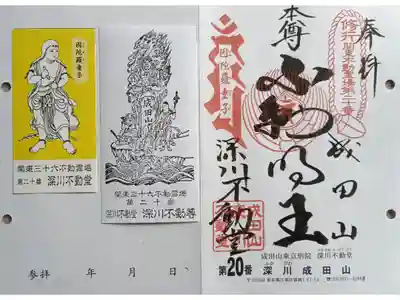 因陀羅童子
関東三十六不動霊場
第二十番 深川不動堂
成田山
関東三十六不動霊場
第二十番
深川不動堂 深川不動尊
参拝 年 月 日、
奉拝
本尊
不動明王
成田山
深川不動堂
因陀羅童子
成田山東京別院 深川不動堂
第20番 深川成田山